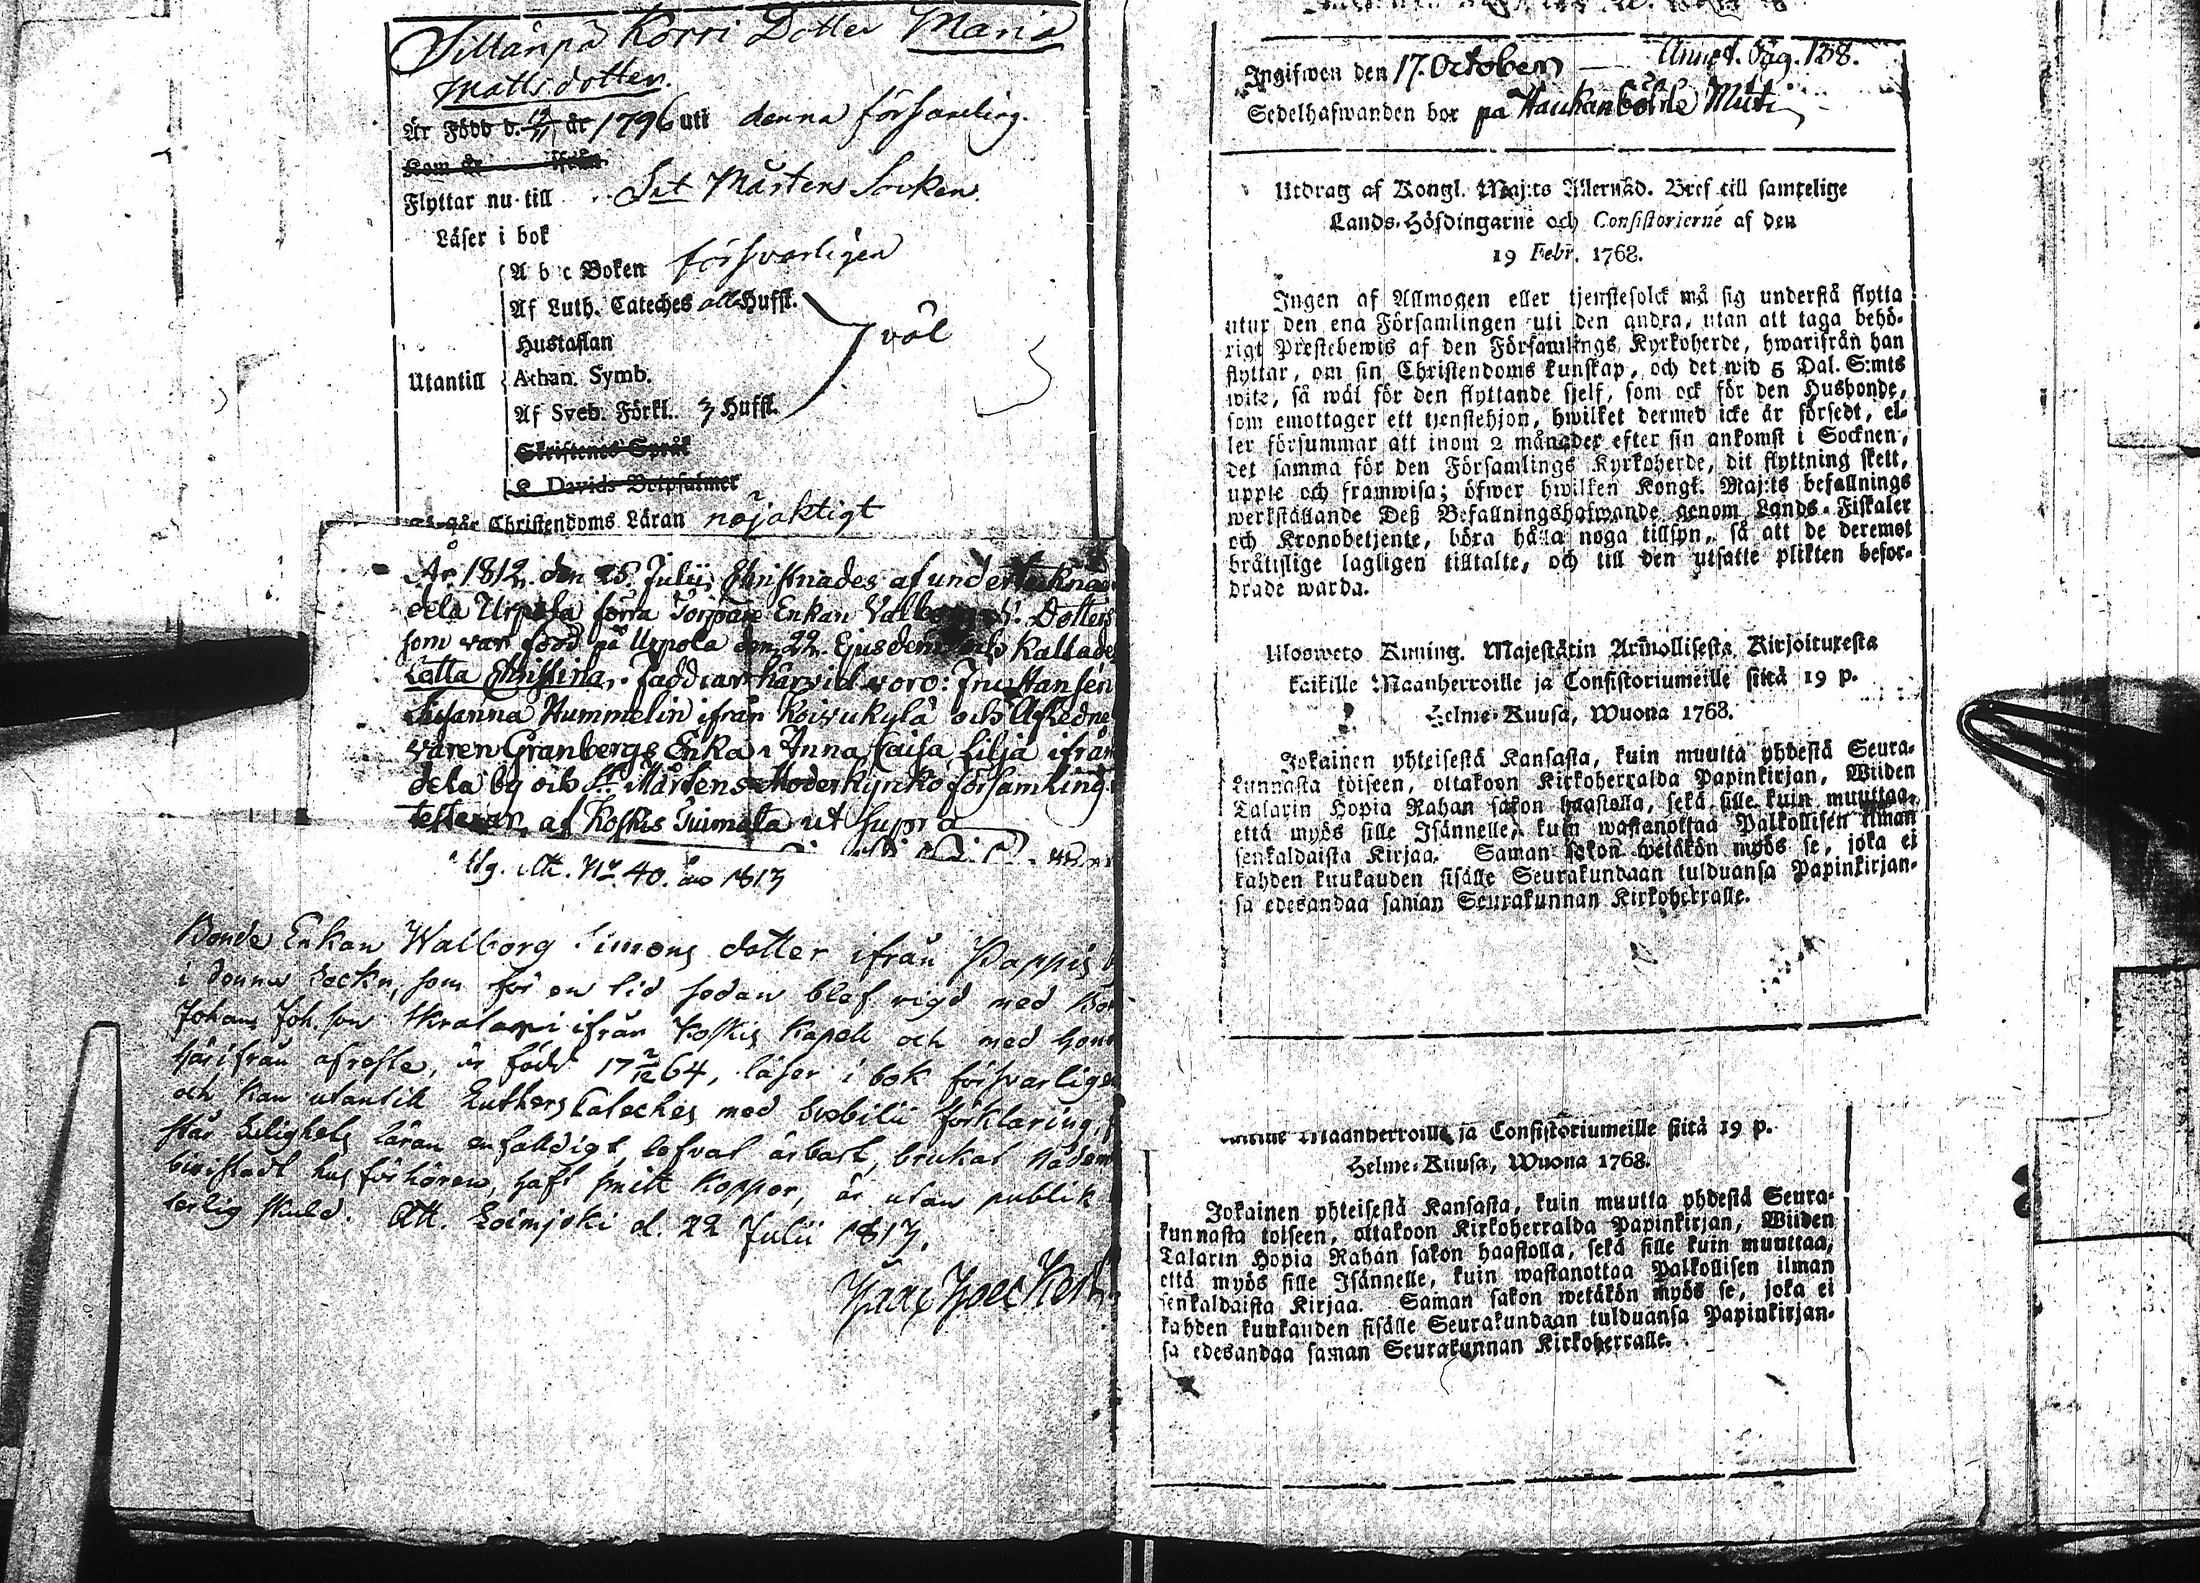 Sillänpä Korri Dotter Maria
Matts dotter.
Är Född d. 12/11 år 1796 uti denna församling.
Kom år ifrån
Flyttar nu till S:ct Mårtens Socken.
Läser i bok
A b c Boken försvarligen
Af Luth. Cateches all Hufst.
Hustaflan
väl
Utantill
Athan. Symb.
Af Sveb. Förkl. 3 Hufst.
Skriftenes Språk
Davids Botpsalmer
Christendoms Läran nöjaktigt
År 1812. den 28. Julii, Christnades af underteknad
dela Urpola förra Torpare Enkan Valborg Dotters
som var född på Urpola den 22. Ejusdem och kallades
Lotta Christina. Faddrar härvid voro: Fru Hansén
Susanna Hummelin ifrån Koivukylä och Afledne
varen Granbergs Enka Anna Caisa Lilja ifrån
dela by och S:t Mårtens Moderkyrko församling
testerar, af Koskis Tuimala ut supra
Ug. Att. N:o 40. år 1813
Bonde Enkan Walborg Simons dotter ifrån Pappis
i denna Sockn, som för en tid sedan blef vigd med
Johan Joh. son ifrån Koskis Kapell och med
härifrån afreste, är född 17 2/12 64, läser i bok försvarligen
och kan utantill Luthers Cateches med Svebilii förklaring,
står Salighets läran enfaldigt, lefvat ärbart, brukat
bivistadt husförhören, haft Koppor, är utan publik
terlig skuld. Att. Loimjoki d. 22 Julii 1813.
Ingifwen den 17. October Annot. Pag. 138.
Sedelhafwanden bor på Haukanböle Muti
Utdrag af Kongl. Maj:ts Allernåd. Bref till samtelige
Lands-Höfdingarne och Consistorierne af den
19 Febr. 1768.
Ingen af Allmogen eller tjenstefolck må sig understå flytta
utur den ena Församlingen uti den andra, utan att taga behö-
rigt Prestebewis af den Församlings Kyrkoherde, hwarifrån han
flyttar, om sin Christendoms kunskap, och det wid 5 Dal. S:mts
wite, så wäl för den flyttande sjelf, som ock för den Husbonde,
som emottager ett tjenstehjon, hwilket dermed icke är försedt, el-
ler försummar att inom 2 månader efter sin ankomst i Socknen,
det samma för den Församlings Kyrkoherde, dit flyttning skett,
uppte och framwisa; öfwer hwilken Kongl. Maj:ts befallnings
werkställande Deß Befallningshafwande genom Lands-Fiskaler
och Kronobetjente, böra hålla noga tillsyn, så att de deremot
bråtislige lagligen tilltalte, och till den utsatte plikten befor-
drade warda.
Ulosweto Kuning. Majestätin Armollisesta Kirjoituxesta
kaikille Maanherroille ja Consistoriumeille siitä 19 p.
Helme-Kuusa, Wuona 1768.
Jokainen yhteisestä Kansasta, kuin muutta yhdestä Seura-
kunnasta toiseen, ottakoon Kirkoherralda Papinkirjan, Wiiden
Talarin Hopia Rahan sakon haastolla, sekä sille kuin muuttaa,
että myös sille Isännelle, kuin wastanottaa Palkollisen ilman
senkaldaista Kirjaa. Saman sakon wetäkön myös se, joka ei
kahden kuukauden sisälle Seurakundaan tulduansa Papinkirjan-
sa edesandaa saman Seurakunnan Kirkoherralle.
Maanherroille ja Consistoriumeille siitä 19 p.
Helme-Kuusa, Wuona 1768.
Jokainen yhteisestä Kansasta, kuin muutta yhdestä Seura-
kunnasta toiseen, ottakoon Kirkoherralda Papinkirjan, Wiiden
Talarin Hopia Rahan sakon haastolla, sekä sille kuin muuttaa,
että myös sille Isännelle, kuin wastanottaa Palkollisen ilman
senkaldaista Kirjaa. Saman sakon wetäkön myös se, joka ei
kahden kuukauden sisälle Seurakundaan tulduansa Papinkirjan-
sa edesandaa saman Seurakunnan Kirkoherralle.